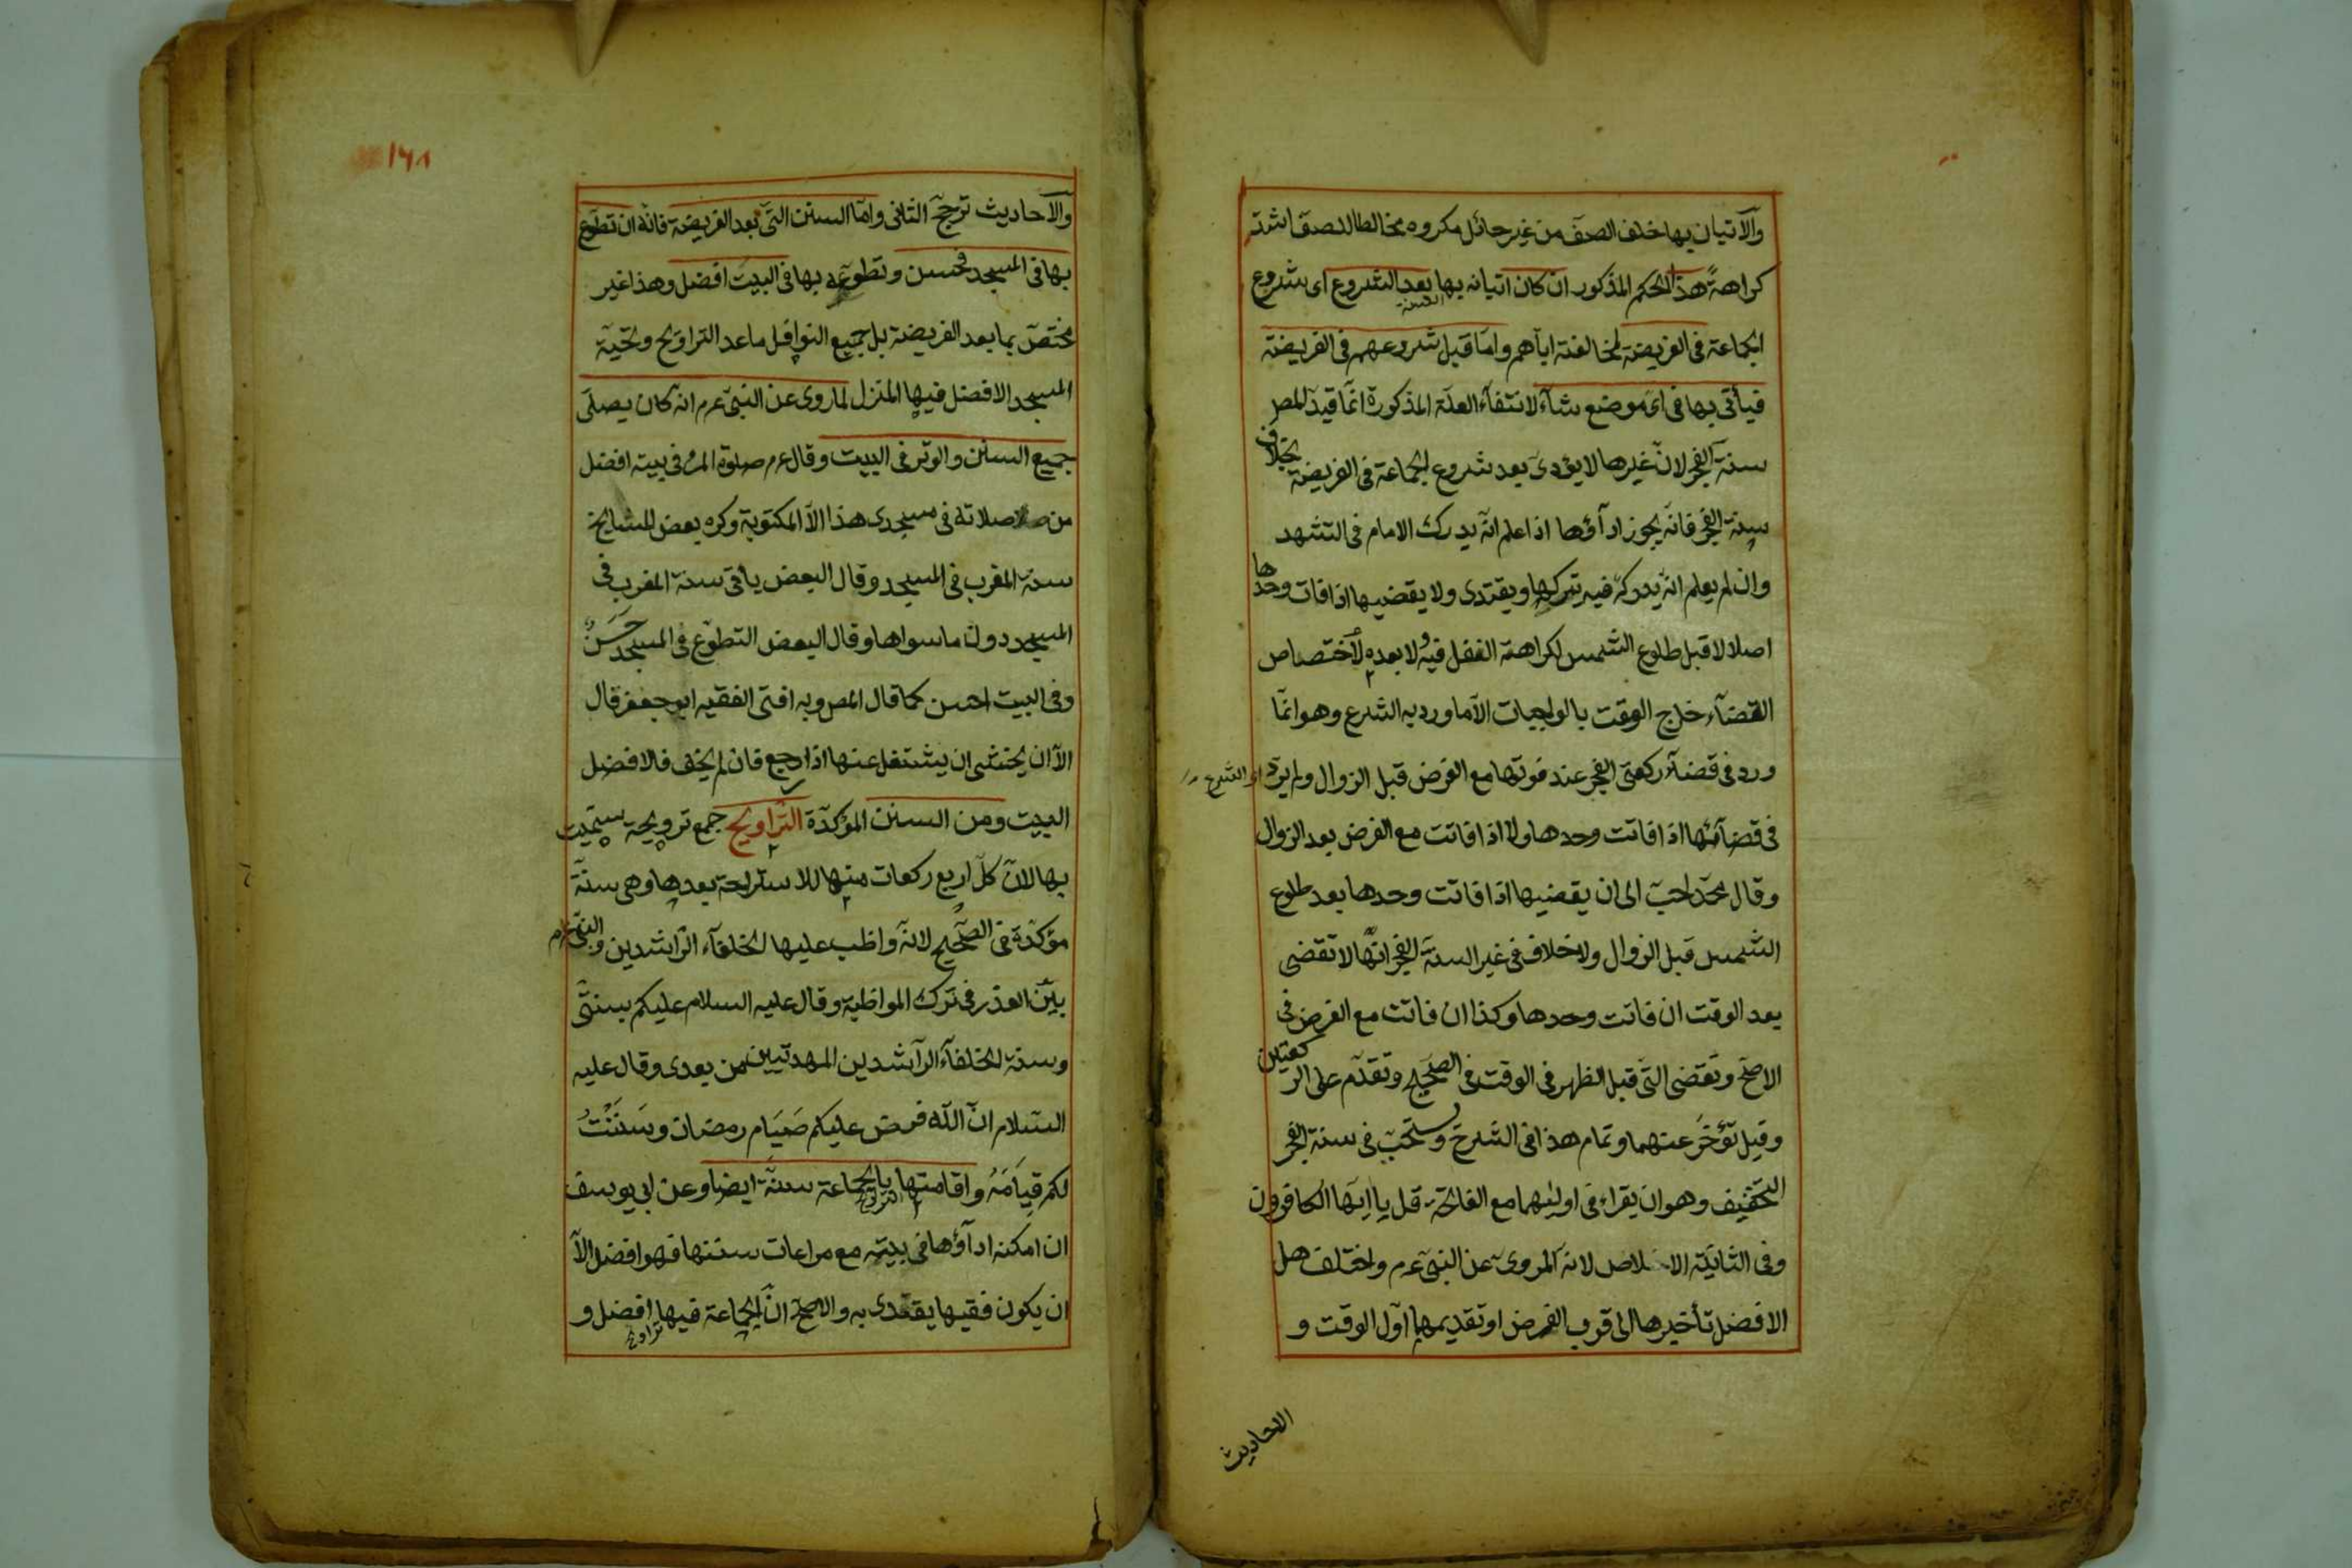 والآتيان بها خلف الصف من غير حائل مكروه مخالطا للصف اشد
كراهة هذا الحكم المذكور ان كان اتيانه بها بعد الشروع اى شروع
السنة
الجماعة فى الفريضة لمخالفته اياهم واما قبل شروعهم فى الفريضة
فيأتى بها فى اى موضع شاء لانتفاء العلة المذكورة انما قيد المص
سنة الفجر لان غيرها لا يؤدى بعد شروع الجماعة فى الفريضة بخلاف
سنة الفجر فانه يجوز اداؤها اذا علم انه يدرك الامام فى التشهد
وان لم يعلم انه يدركه فيه تركها ويقتدى ولا يقضيها اذا فات وحدها
اصلا لا قبل طلوع الشمس لكراهة النفل فيه ولا بعده لاختصاص
القضاء خارج الوقت بالواجبات الا ما ورد به الشرع وهو انما
ورد فى قضاء ركعتى الفجر عند فوتها مع الفرض قبل الزوال ولم يرد اى الشرع
فى قضائها اذا فاتت وحدها ولا اذا فاتت مع الفرض بعد الزوال
وقال محمد احب الى ان يقضيها اذا فاتت وحدها بعد طلوع
الشمس قبل الزوال ولا خلاف فى غير السنة الفجر انها لا تقضى
بعد الوقت ان فاتت وحدها وكذا ان فاتت مع الفرض فى
الاصح وتقضى التى قبل الظهر فى الوقت فى الصحيح وتقدم على الركعتين
وقيل تؤخر عنهما وتمام هذا فى الشرح ويستحب فى سنة الفجر
التخفيف وهو ان يقراء فى اوليهما مع الفاتحة قل يا ايها الكافرون
وفى الثانية الاخلاص لانه المروى عن النبى عم واختلف هل
الافضل تأخيرها الى قرب الفرض او تقديمها اول الوقت و
الاحاديث
١٦٨
والآحاديث ترجح الثانى واما السنن التى بعد الفريضة فانه ان تطوع
بها فى المسجد فحسن وتطوعه بها فى البيت افضل وهذا غير
مختص بما بعد الفريضة بل جميع النوافل ما عدا التراويح وتحية
المسجد الافضل فيها المنزل لما روى عن النبى عم انه كان يصلى
جميع السنن والوتر فى البيت وقال عم صلوة المرء فى بيته افضل
من صلاته فى مسجدى هذا الا المكتوبة وكره بعض المشايخ
سنة المغرب فى المسجد وقال البعض يأتى سنة المغرب فى
المسجد دون ما سواها وقال البعض التطوع فى المسجد حسن
وفى البيت احسن كما قال المص وبه افتى الفقيه ابو جعفر قال
الا ان يخشى ان يشتغل عنها اذا رجع فان لم يخف فالافضل
البيت ومن السنن المؤكدة التراويح جمع ترويحة سميت
بها لان كل اربع ركعات منها للاستراحة بعدها وهى سنة
مؤكدة فى الصحيح لانه واظب عليها الخلفاء الراشدين والنبى عم
بين العذر فى ترك المواظبة وقال عليه السلام عليكم بسنتى
وسنة الخلفاء الراشدين المهديين من بعدى وقال عليه
السلام ان الله فرض عليكم صيام رمضان وسننت
لكم قيامه واقامتها بالجماعة سنة ايضا وعن ابى يوسف
التراويح
ان امكنه اداؤها فى بيته مع مراعات سننها فهو افضل الا
ان يكون فقيها يقتدى به والاصح ان الجماعة فيها افضل و
تراويح